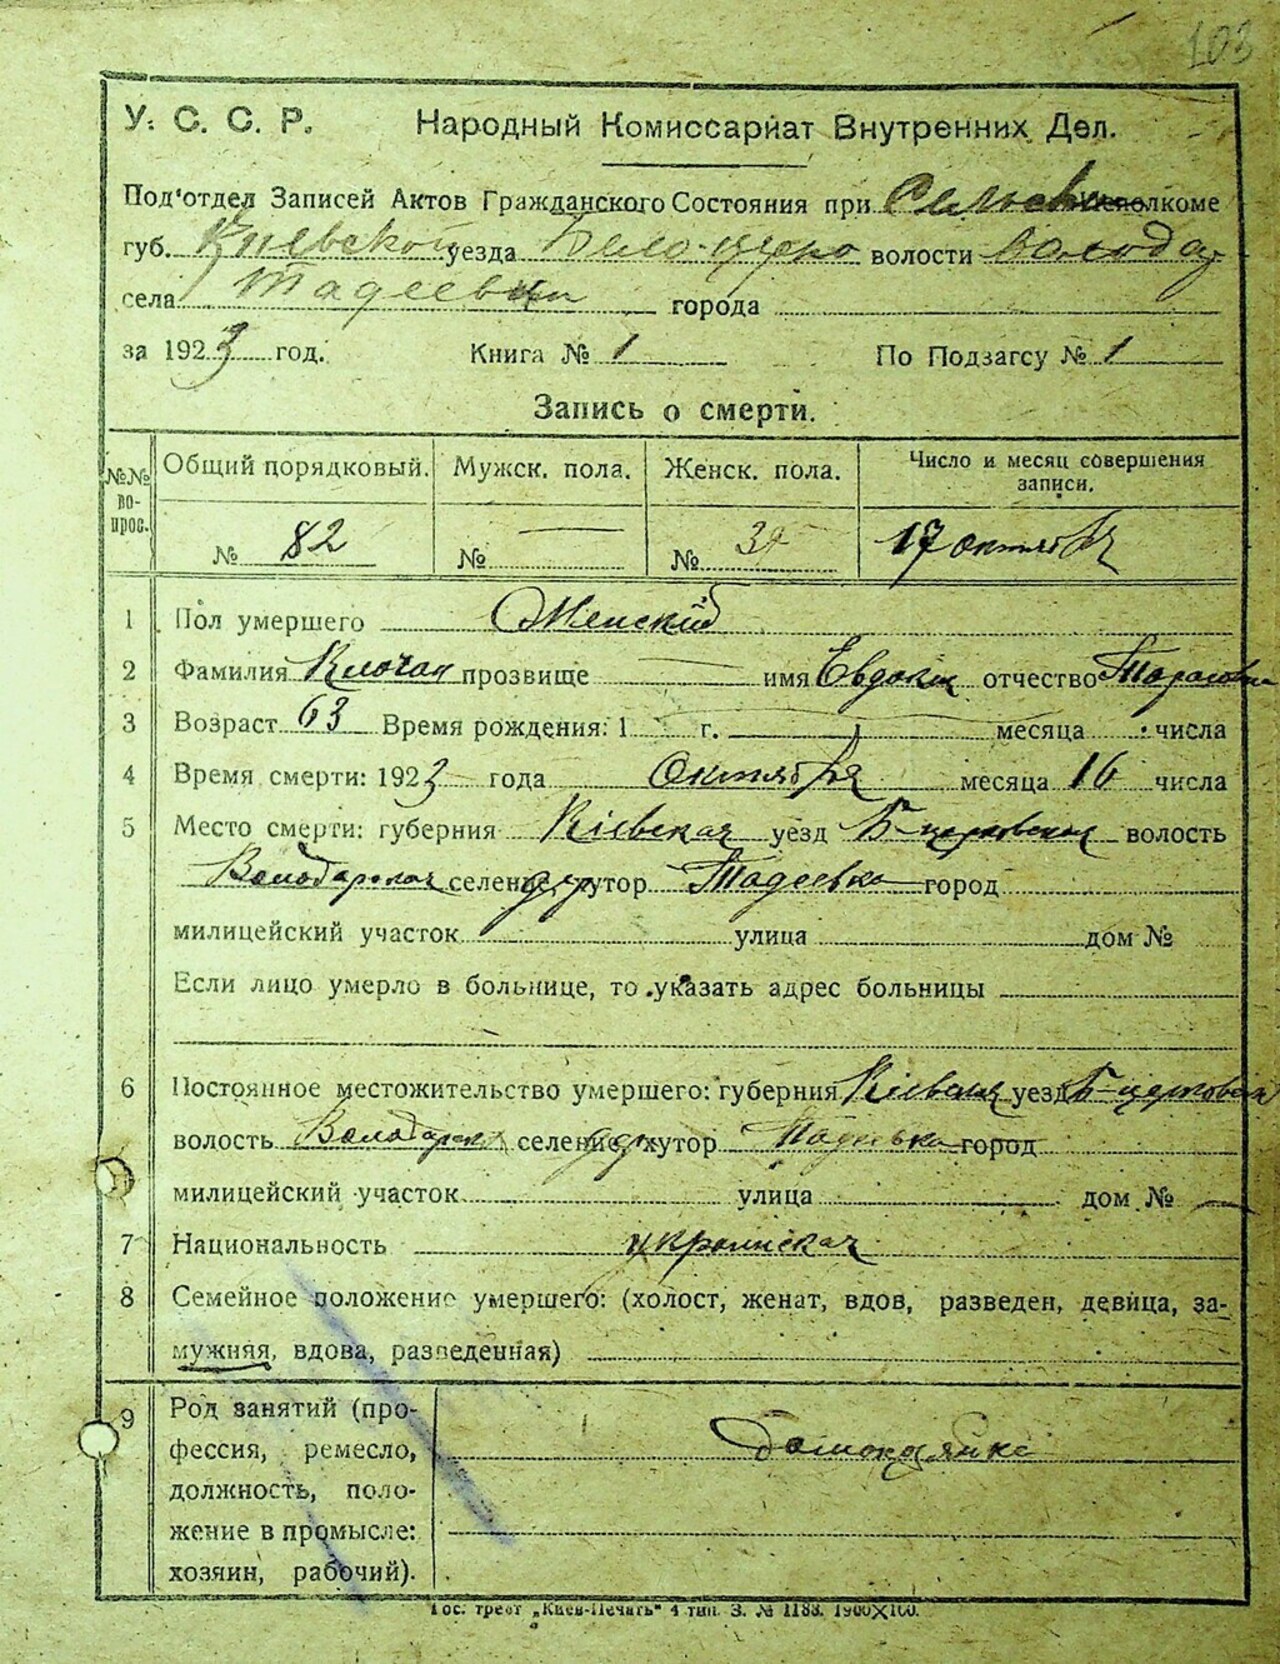 103
У. С. С. Р. Народный Комиссариат Внутренних Дел.
Под'отдел Записей Актов Гражданского Состояния при Исполкоме
губ. Киевской уезда Бело-церко волости Волода
села Тадеевки города
за 1923 год. Книга № 1 По Подзагсу № 1
Запись о смерти.
№№ во- прос. Общий порядковый. Мужск. пола. Женск. пола. Число и месяц совершения записи.
№ 82 № — № 17 октября
1 Пол умершего Женский
2 Фамилия Клочан прозвище — имя Евдокия отчество Тарасовна
3 Возраст 63 Время рождения: 1 г. — месяца числа
4 Время смерти: 1923 года Октября месяца 16 числа
5 Место смерти: губерния Кіевская уезд Б-церковский волость
Володарская селение, хутор Тадеевка город
милицейский участок улица дом №
Если лицо умерло в больнице, то указать адрес больницы
6 Постоянное местожительство умершего: губерния Кіевская уезд Б-церковский
волость Володарск селение, хутор Тадеевка город
милицейский участок улица дом № —
7 Национальность украинская
8 Семейное положение умершего: (холост, женат, вдов, разведен, девица, за-
мужняя, вдова, разведенная)
9 Род занятий (про-
фессия, ремесло,
должность, поло-
жение в промысле:
хозяин, рабочий).
Гос. трест „Киев-Печать" 4 тип. З. № 1188. 1900×100.